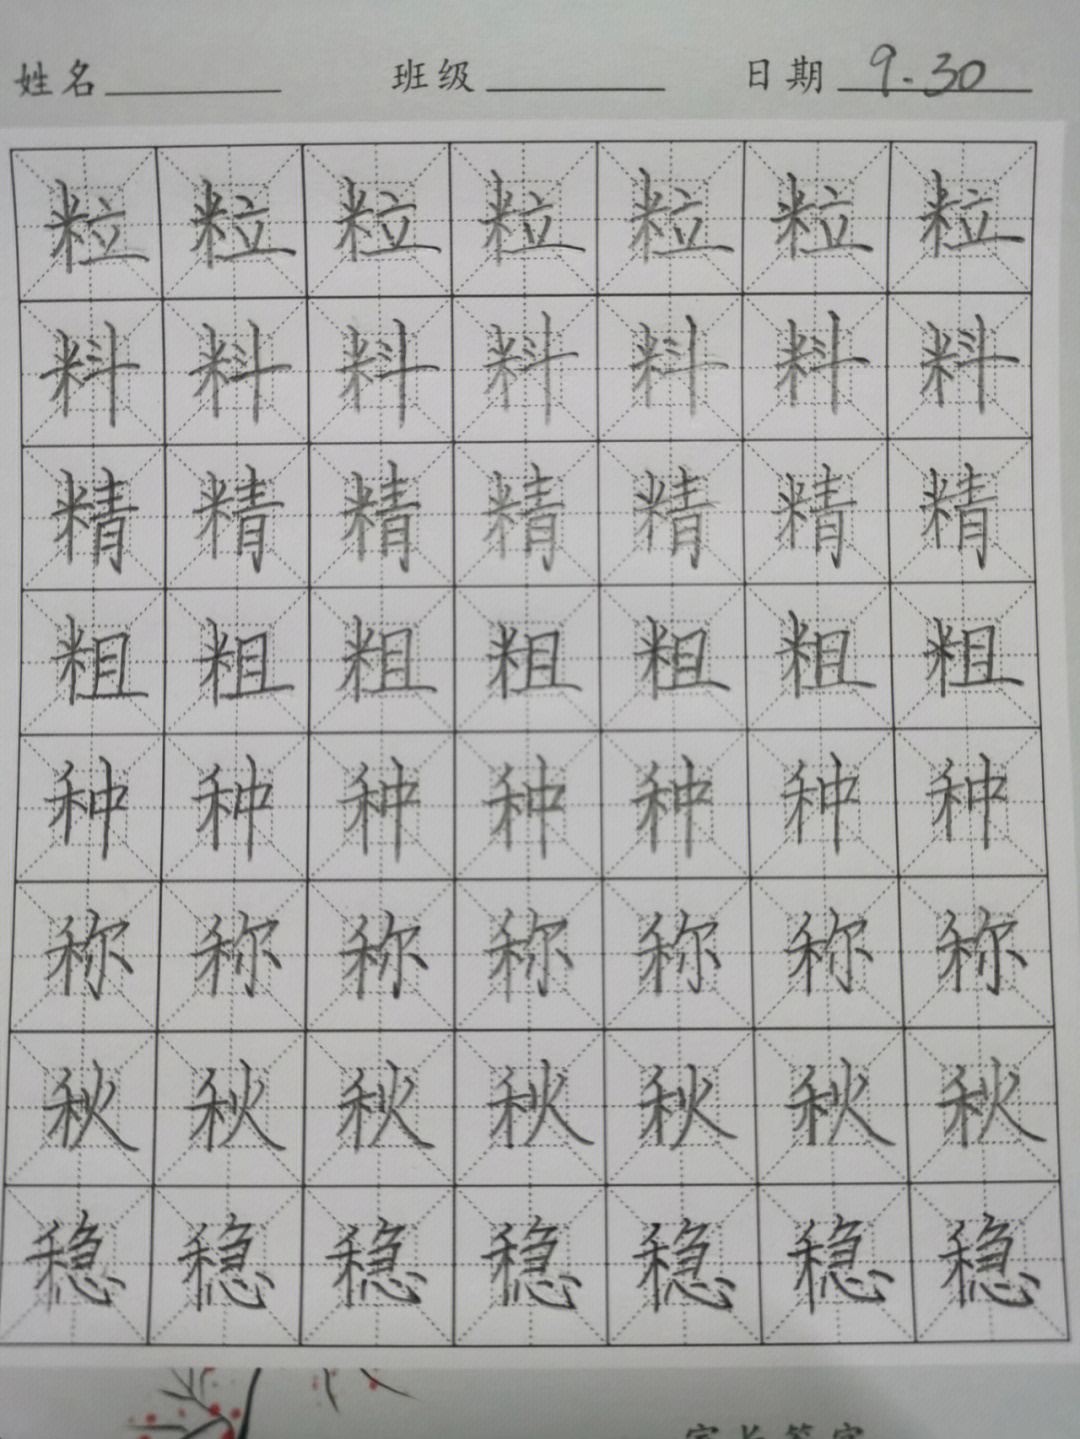 姓名 班级 日期 9.30
粒 粒 粒 粒 粒 粒 粒
料 料 料 料 料 料 料
精 精 精 精 精 精 精
粗 粗 粗 粗 粗 粗 粗
种 种 种 种 种 种 种
称 称 称 称 称 称 称
秋 秋 秋 秋 秋 秋 秋
稳 稳 稳 稳 稳 稳 稳